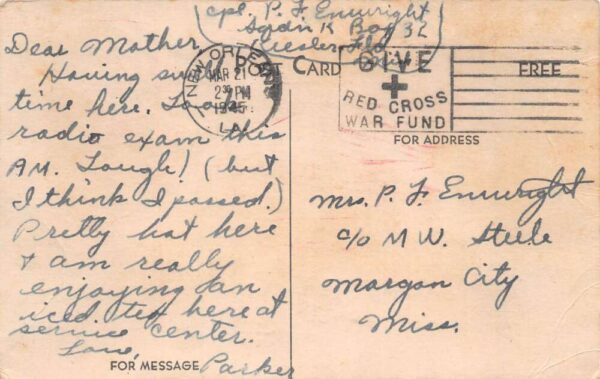 Cpl. P. F. Enwright
Sqdn K Box 32
Keesler Fld
POST CARD
NEW ORLEANS
MAR 21
2 PM
1945
LA.
GIVE
RED CROSS
WAR FUND
FREE
FOR ADDRESS
Dear Mother,
Having swell
time here. Took
radio exam this
AM. Tough! (but
I think I passed.)
Pretty hot here
& am really
enjoying an
iced tea here at
service center.
Love,
Parker
FOR MESSAGE
Mrs. P. F. Enwright
c/o M W. Steele
Morgan City
Miss.